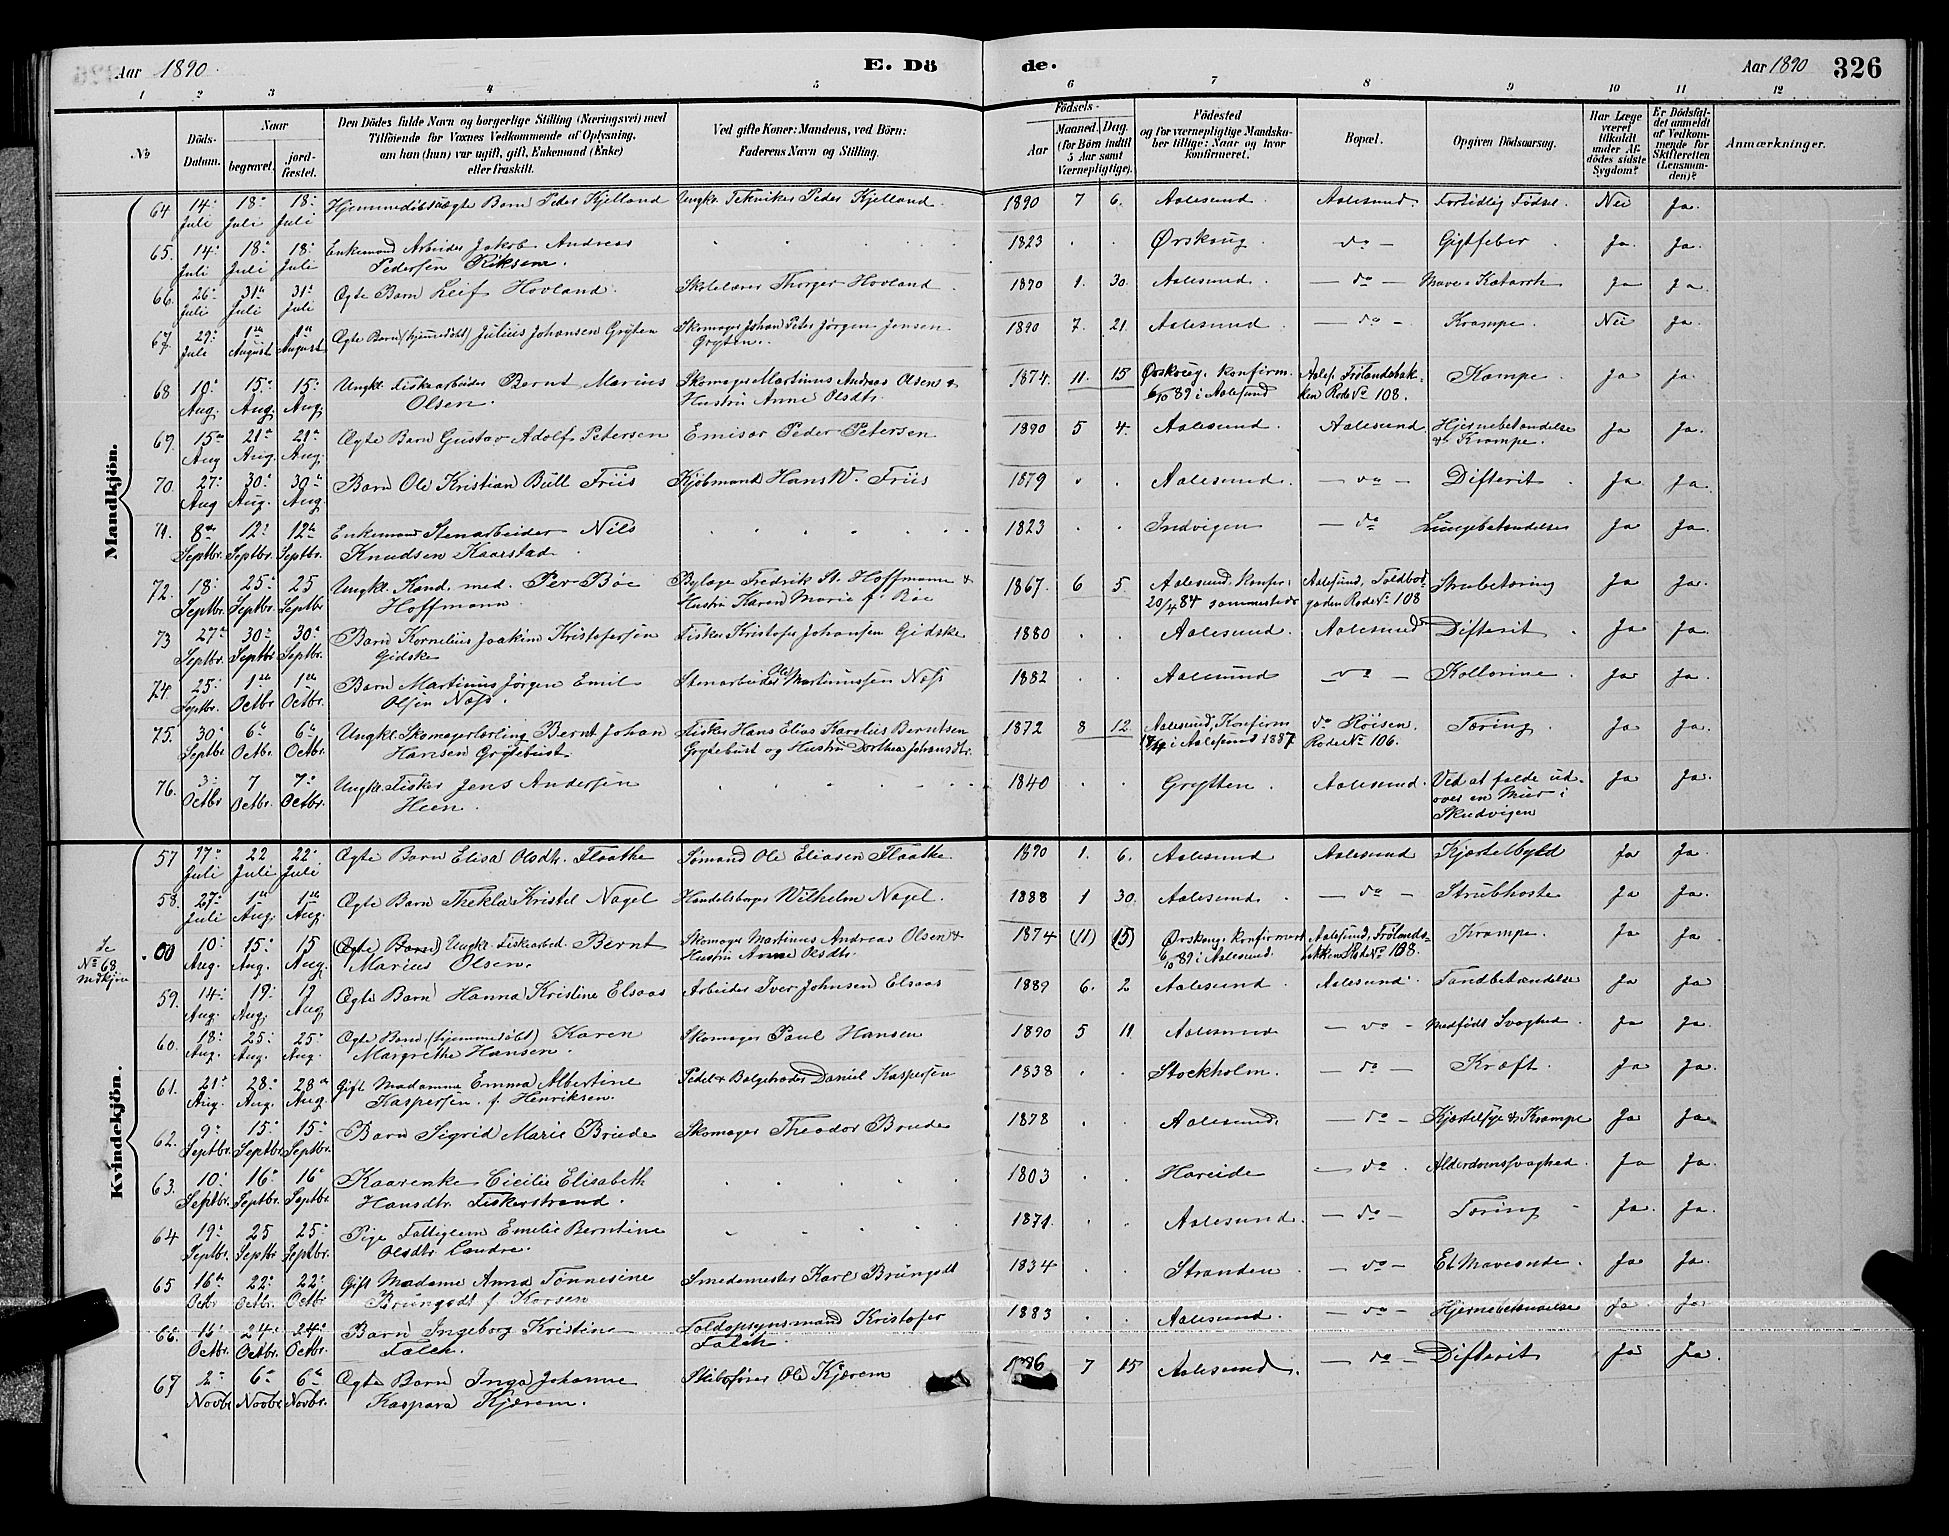 Aar 1890.
E. Dö
de.
Aar 1890
326
1 2 3 4 5 6 7 8 9 10 11 12
No
Döds-Datum.
Naar
begravet.
jordfæstet.
Den Dödes fulde Navn og borgerlige Stilling (Næringsvei) med Tilföiende for Voxnes Vedkommende af Oplysning, om han (hun) var ugift, gift, Enkemand (Enke) eller fraskilt.
Ved gifte Koner: Mandens, ved Börn: Faderens Navn og Stilling.
Födsels-
Aar
Maaned. Dag.
(for Börn indtil 5 Aar samt Værnepligtige).
Födested og for værnepligtige Mandskaber tillige: Naar og hvor Konfirmeret.
Bopæl.
Opgiven Dödsaarsag.
Har Læge været tilkaldt under Afdödes sidste Sygdom?
Er Dödsfaldet anmeldt af Vedkommende for Skifteretten (Lensmanden)?
Anmærkninger.
Mandkjön.
64 14: Juli 18: Juli 18: Juli Hjemmedöbt uægte Barn Peder Kjelland Ungk. Tekniker Peder Kjelland. 1890 7 6. Aalesund. Aalesund. Fortidlig Födsel. Nei Ja.
65. 14: Juli 18: Juli 18: Juli Enkemand Arbeider Jakob Andreas Pedersen 1823 Ørskoug. do Gigtfeber Ja. Ja.
66. 26: Juli 31: Juli 31: Juli Ægte Barn Leif Hovland. Skolelærer Thorger Hovland. 1890 1. 30. Aalesund. do Mave-Katarrh Ja Ja.
67. 29: Juli 1ste August 1ste August Ægte Barn (hjemmedöbt) Julius Johansen Gryten Skomager Johan Peter Jørgen Jensen Gryten. 1890 7. 21. Aalesund. do Krampe. Nei Ja.
68 10: Aug. 15: Aug. 15: Aug. Ungkl. Fiskearbeider Bernt Marius Olsen. Skomager Martinus Andreas Olsen & Hustru Anne Olsdtr. 1874. 11. 15 Ørskoug. konfirm. 6/10 89 i Aalesund Aales. Frölandsbakken Rode No 108. Kampe. Ja Ja.
69. 15de Aug 21de Aug. 21de Aug. Ægte Barn Gustav Adolf Petersen Emisær Peder Petersen 1890 5 4. Aalesund. Aalesund. Hjernebetændelse & Krampe. Ja Ja.
70. 27: Aug 30: Aug. 30: Aug. Barn Ole Kristian Bull Friis Kjöbmand Hans W. Friis 1879 Aalesund. do Difterit. Ja Ja.
71. 8de Septbr. 12: Septbr. 12te Septbr. Enkemand Stenarbeider Nils Knudsen Kaarstad 1823 Indvigen do Lungebetændelse Ja Ja.
72. 18: Septbr. 25: Septbr. 25 Septbr Ungkl. Kand. med. Per Böe Hoffmann. Bylæge Fredrik St. Hoffmann & Hustru Karen Marie f. Böe 1867. 6 5. Aalesund, konfir: 20/4 84 sammesteds Aalesund, Toldbodgaden Rode No 108 Strubetæring Ja Ja.
73 27de Septbr. 30: Septbr. 30: Septbr. Barn Kornelius Joakim Kristofersen Gidske Fisker Kristofer Johansen Gidske 1880 Aalesund. Aalesund Difterit Ja Ja.
74 25: Septbr. 1ste Octbr. 1ste Octbr. Barn Martinus Jørgen Emil Olsen Næss. Stenarbeider Ole Martinussen Næss 1882 Aalesund do Kollorine. Ja Ja.
75. 30: Septbr 6te Octbr. 6te Octbr. Ungkl. Skomagerlærling Bernt Johan Hansen Grytebust Fisker Hans Elias Karolius Berntsen Grytebust og Hustru Dorthea Johansdtr. 1872 8 12. Aalesund. Konfirm i Aalesund 1887 do Röisen. Rode No 106. Tæring. Ja Ja.
76. 3: Octbr 7 Octbr. 7: Octbr. Ungkl. Fisker Jens Andersen Heen. 1840 Grytten. Aalesund. Ved at falde ud over en Muur i Skudvigen Ja Ja.
Kvindekjön.
57 17: Juli 22 Juli 22: Juli Ægte Barn Elisa Olsdtr. Flaathe Sömand Ole Eliasen Flaathe. 1890 1. 6. Aalesund Aalesund Kjertelbyld Ja Ja.
58. 27: Juli 1ste Aug. 1ste Aug. Ægte Barn Thekla Kristel Nagel Handelsborger Wilhelm Nagel. 1888 1 30. Aalesund do Strubhoste Ja Ja.
Se No 68 Mdkjön
00 10: Aug. 15: Aug. 15 Aug. (Ægte Barn) Ungkl. Fiskearbed. Bernt Marius Olsen. Skomager Martinus Andreas Olsen & Hustru Anne Olsdtr. 1874 (11) (15) Ørskoug, konfirmert 6/10 89 i Aalesund. Aalesund, Frölandsbakken Rode No 108. Krampe. Ja Ja.
59. 14: Aug. 19: Aug. 19 Aug Ægte Barn Hanna Kristine Elsaas Arbeider Iver Johnsen Elsaas 1889 6. 2 Aalesund Aalesund. Tandbetændelse Ja Ja
60. 18: Aug. 25: Aug. 25: Aug. Ægte Barn (hjemmedöbt) Karen Margrethe Hansen. Skomager Paul Hansen 1890 5 11 Aalesund do Medfödt Svaghed. Ja Ja.
61. 21: Aug. 28: Aug. 28de Aug. Gift Madamme Emma Albertine Kaspersen f. Henriksen. Pedel & Bælgetræder Daniel Kaspersen 1838 Stockholm. do Kræft. Ja Ja.
62. 9: Septbr. 15: Septbr. 15: Septbr. Barn Sigrid Marie Brude Skomager Theodor Brude 1878 Aalesund. do Kjertelsyge & Krampe Ja Ja
63. 10: Septbr. 16: Septbr. 16 Septbr. Kaarenke Cicilie Elisabeth Hansdtr. Fiskerstrand. 1803 Hareide do Alderdomssvaghed. Ja Ja.
64 19: Septbr. 25 Septbr 25: Septbr. Pige Fattiglem Emilie Berntine Olsdtr. 1871. Aalesund. do Tæring Ja. Ja.
65 16de Octbr 22: Octbr. 22: Octbr Gift Madame Anna Tönnesine Brungodt f. Korsen Smedemester Karl Brungodt 1834 Stranden do Et Mavesaar. Ja Ja.
66. Octbr. 24: Octbr. 24: Octbr. Barn Ingeborg Kristine Falch. Toldopsynsmand Kristofer Falch 1883 Aalesund. do Hjernebetændelse Ja Ja.
67 2: Novbr 6te Novbr 6te Novbr. Ægte Barn Inga Johanne Kaspara Kjærem. Skibsförer Ole Kjærem 1886 7 15 Aalesund. do Difterit Ja Ja.